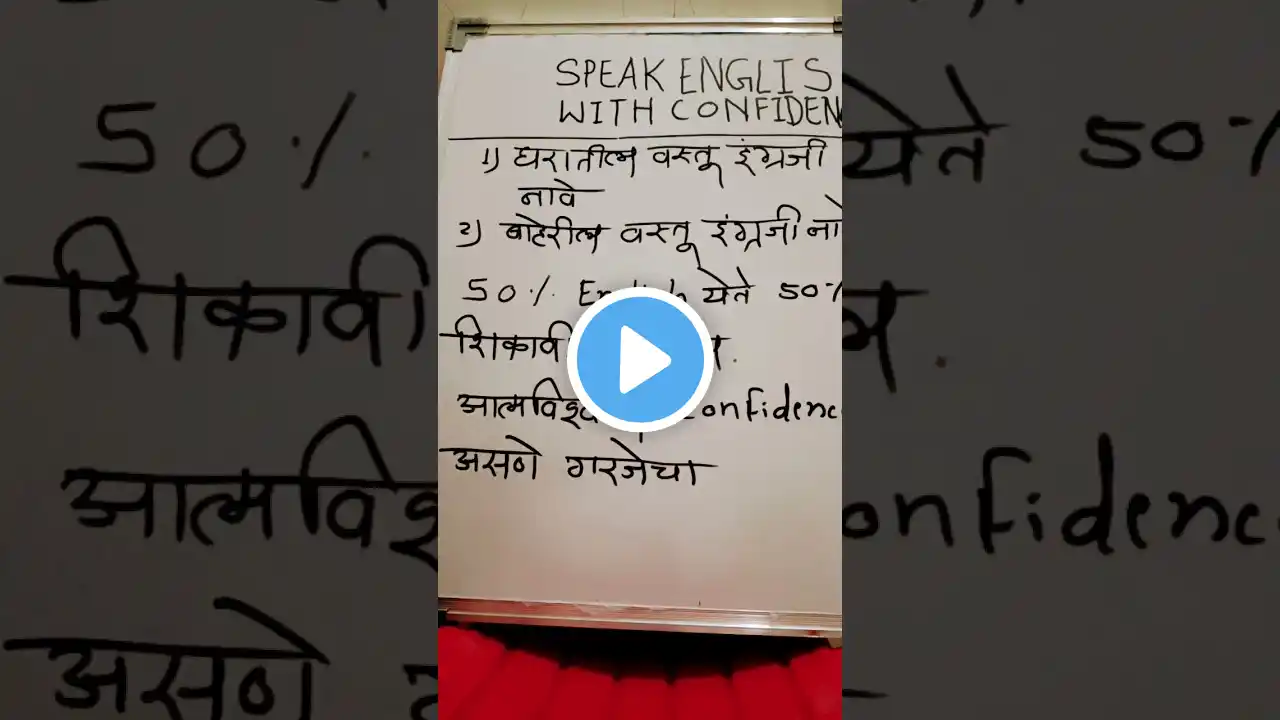 SPEAK ENGLIS
WITH CONFIDEN
१) घरातील वस्तू इंग्रजी
नावे
२) बाहेरील वस्तू इंग्रजी
50% येते 50%
आत्मविश्व confidenc
असणे गरजेचा